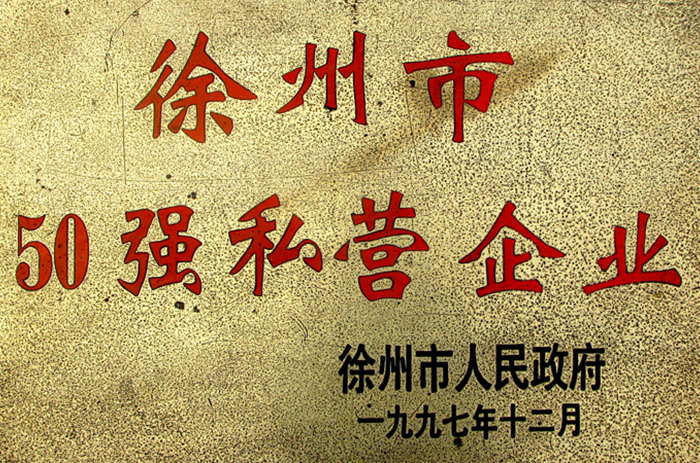 徐州市
50强私营企业
徐州市人民政府
一九九七年十二月